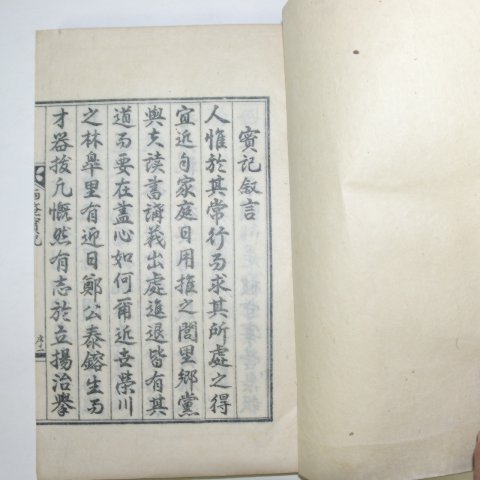 實記敘言
人惟於其常行而求其所處之得
宜近自家庭日用推之閭里鄉黨
與夫读書講義出處進退皆有其
道而要在盡心如何爾近世榮川
之林皐里有迎日鄭公泰鎔生而
才器拔凡慨然有志於立揚治擧